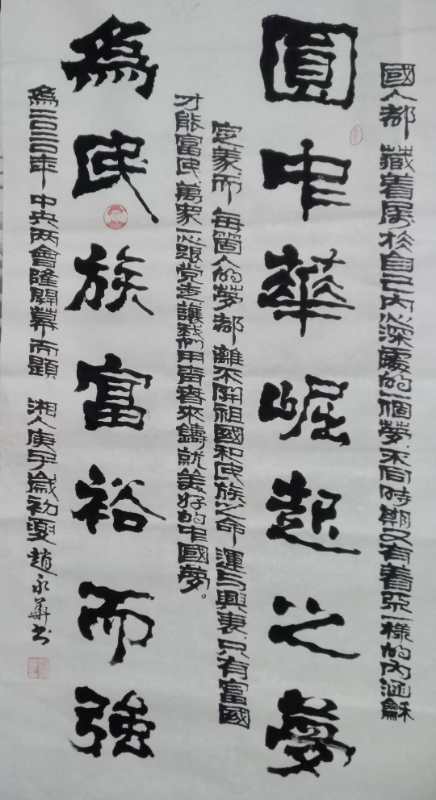 國人都藏着屬於自己内心深處的一個夢不同时期又有着不一樣的内涵龢
圓中華崛起之夢
定義而每箇人的夢都離不開祖國和民族之命運与興衰只有富國
才能富民萬衆一心跟党走讓我們用青春來鑄就美好的中國夢。
為民族富裕而強
為二〇二〇年中央两會隆開幕而題 湘人庚子歲初夏趙永華书